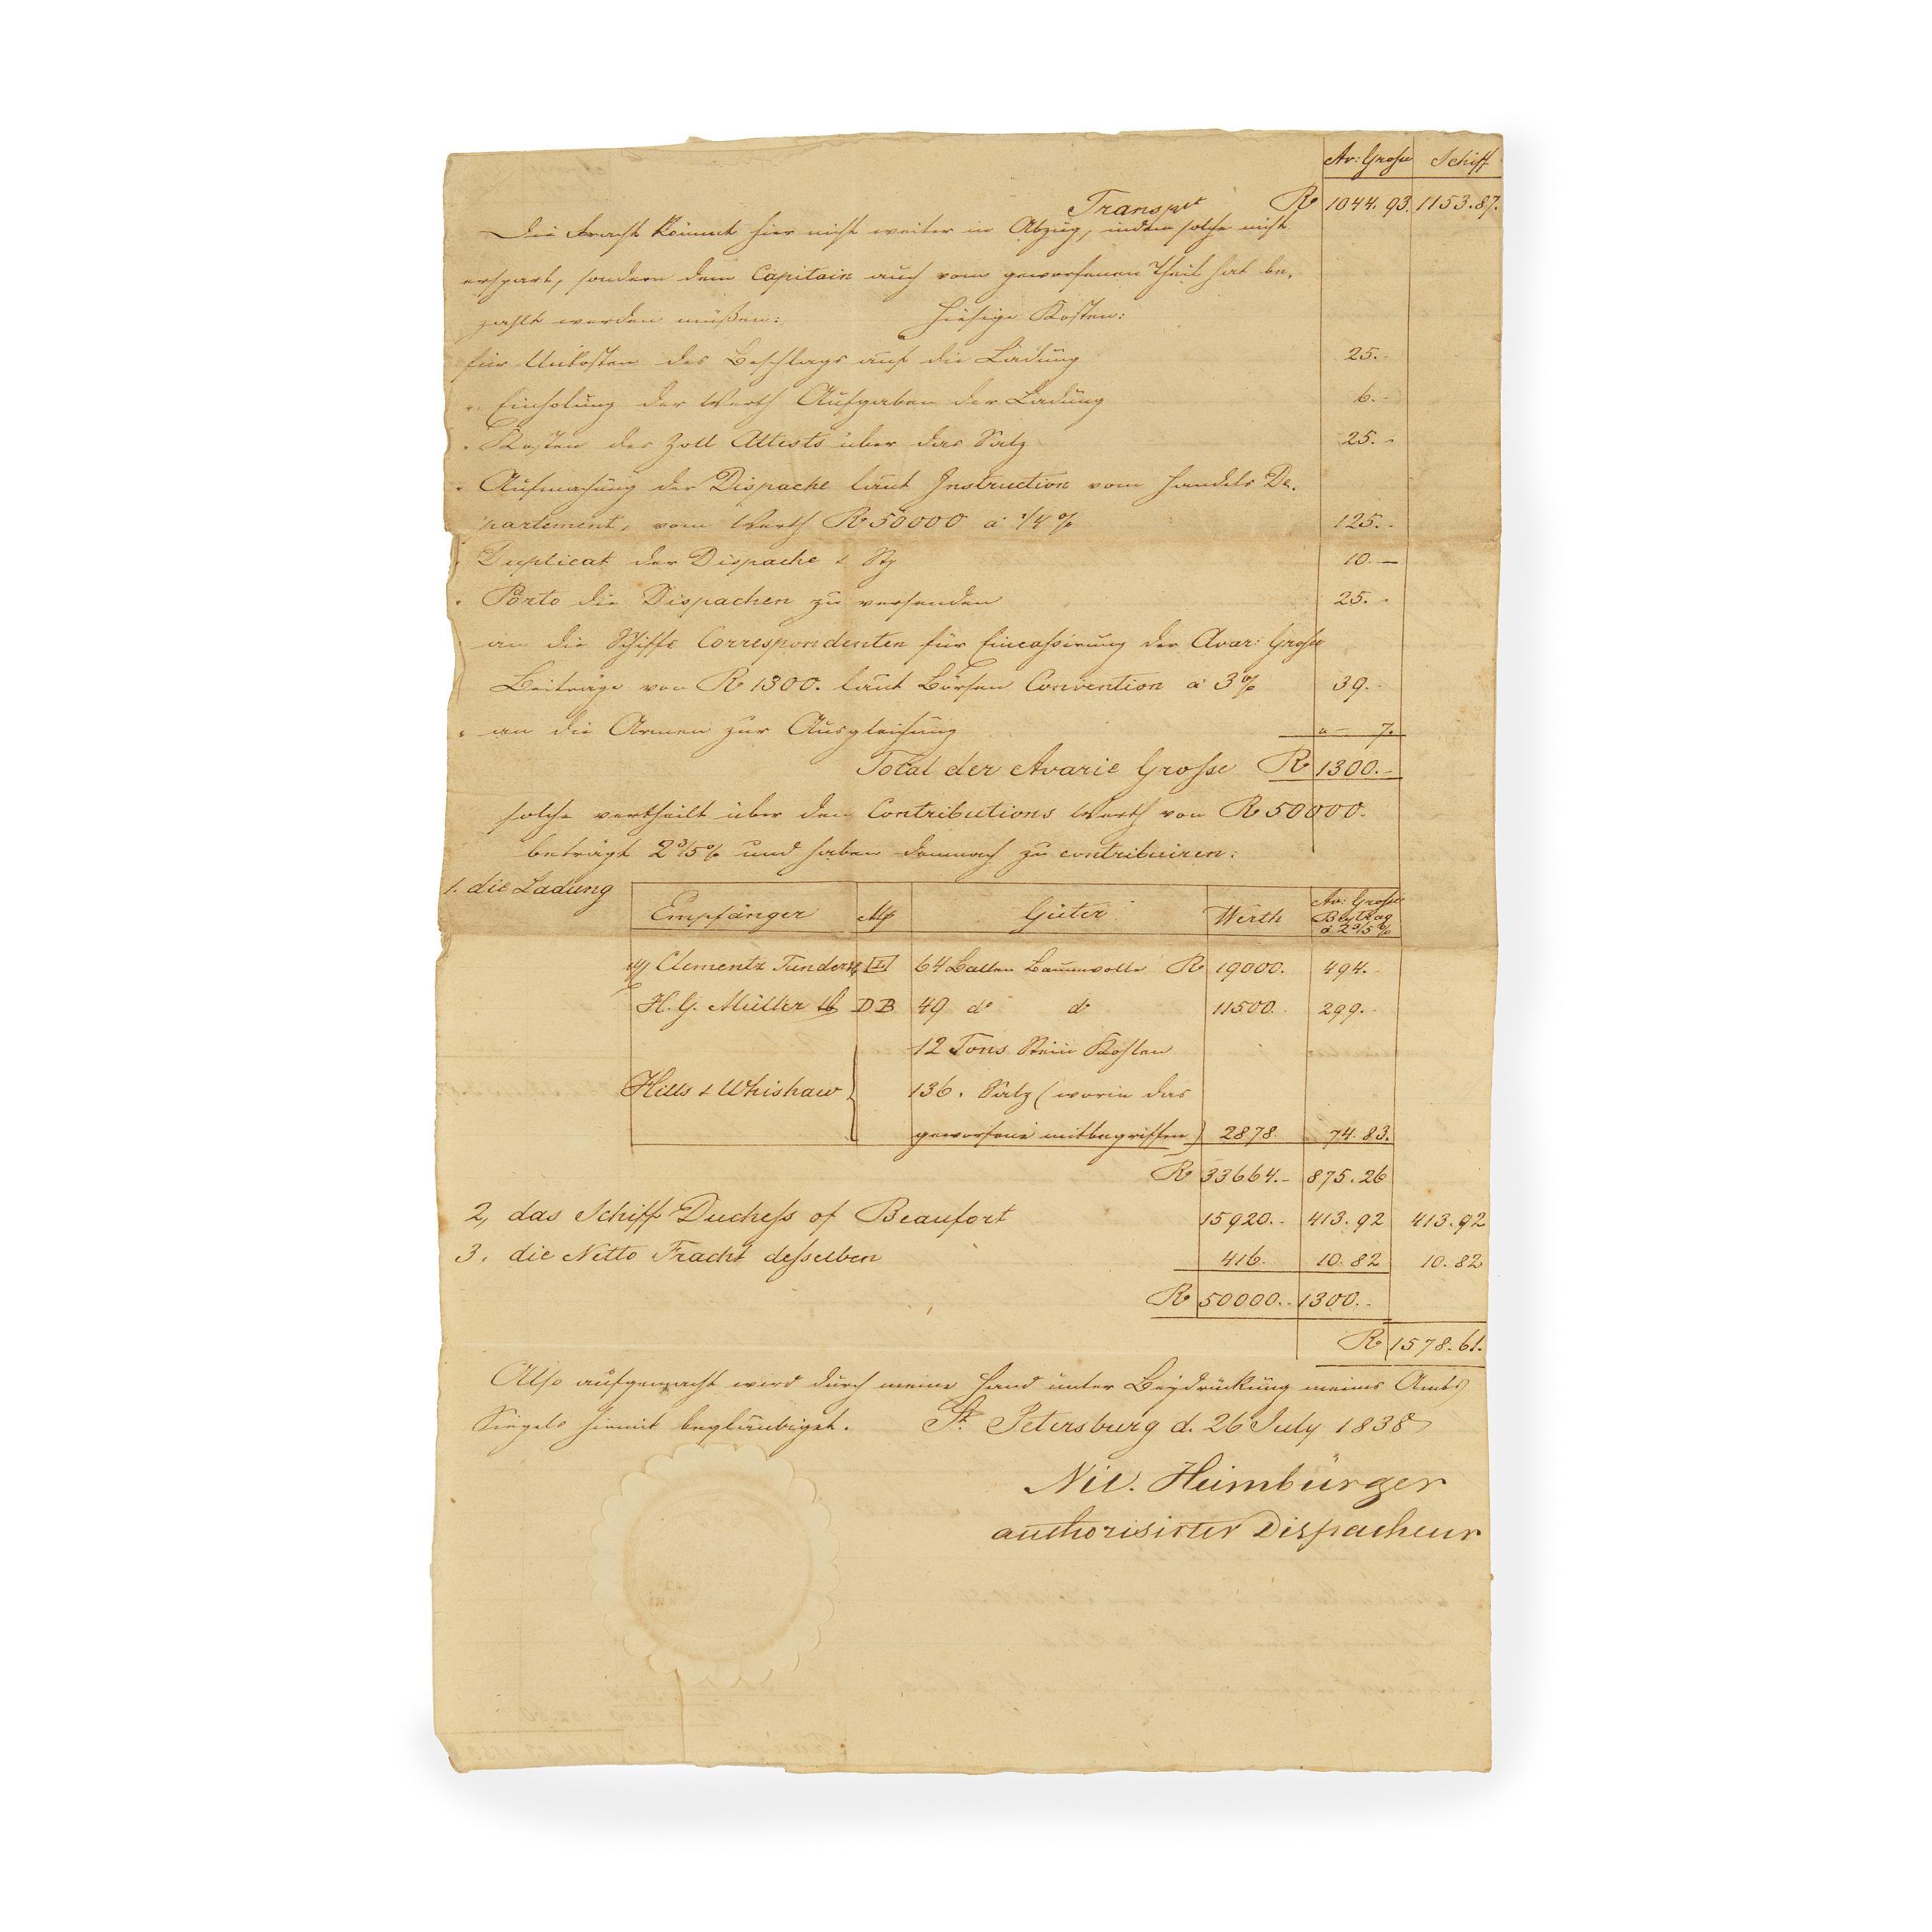 Av: Grosse Schiff
Transpt R 1044. 93. 1153. 87.
Die Fracht kömmt hier nicht weiter in Abzug, indem solche nicht
erspart, sondern dem Capitain auch vom geworfenen Theil hat be-
zahlt werden müßen: hiesige Kosten:
für Unkosten des Beschlags auf die Ladung 25.-
" Einholung der Werth Aufgaben der Ladung 6.-
" Kosten des Zoll Attests über das Salz 25.-
" Aufmachung der Dispache laut Instruction vom Handels De-
partement, vom Werth R 50000 a 1/4 % 125.-
" Duplicat der Dispache & 10.-
" Porto die Dispachen zu versenden 25.-
an die Schiffs Correspondenten für Eincassirung der Avar: Grosse
Beiträge von R 1300. laut Börsen Convention a 3% 39.-
" an die Armen zur Ausgleichung " - 7.
Total der Avarie Grosse R 1300.-
solche vertheilt über den Contributions Werth von R 50000.
beträgt 2 3/5 % und haben demnach zu contribuiren:
1. die Ladung
Empfänger Güter Werth Av: Grosse Beytrag a 2 3/5 %
Clementz 64 Ballen Baumwolle R 19000. 494.-
H. G. Müller DB 49 do do 11500. 299.-
12 Tons Stein Kohlen
Hills & Whishaw 136. Salz (worin das
geworfene mitbegriffen) 2878. 74. 83.
R 33664.- 875. 26
2, das Schiff Duchess of Beaufort 15920.- 413. 92 413. 92
3. die Netto Fracht desselben 416. 10. 82 10. 82
R 50000.- 1300.-
R 1578. 61.
Also aufgemacht wird durch meine Hand unter Beydrückung meines Amts
Siegels hiemit beglaubiget. St. Petersburg d. 26 July 1838
Nic. Heimbürger
authorisirter Dispacheur